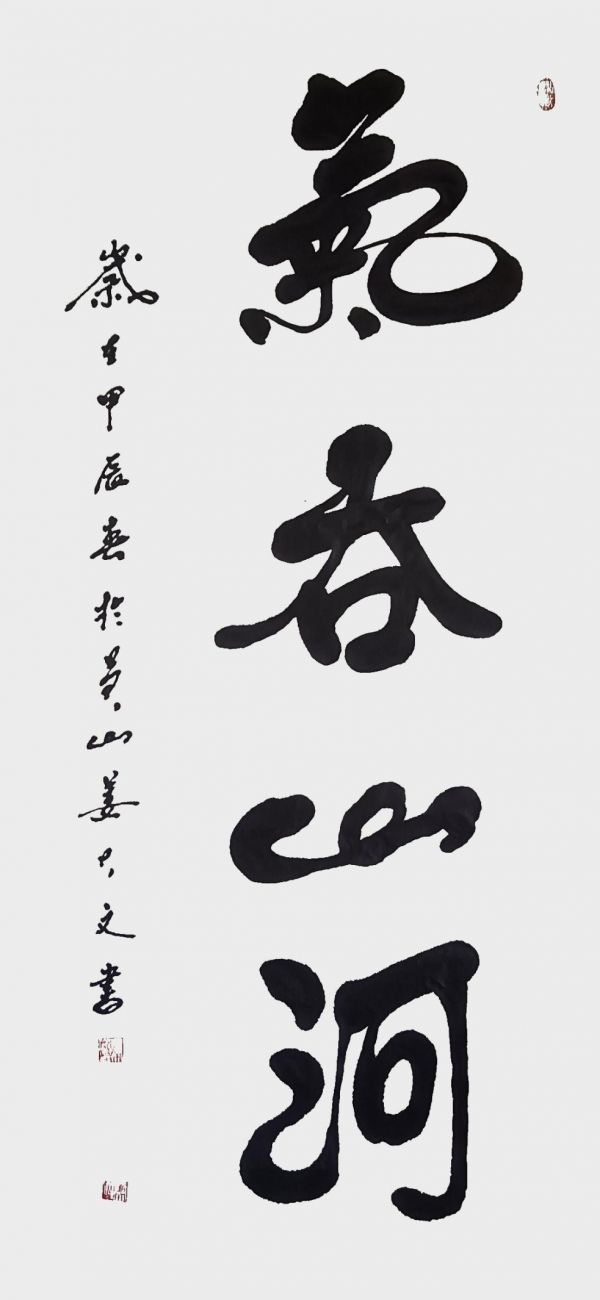 氣吞山河
歲在甲辰春於黃山姜大文書